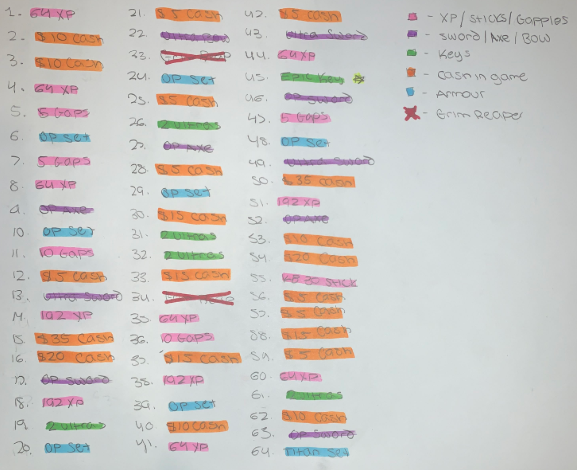 1. 64 XP
2. $10 cash
3. $10 cash
4. 64 XP
5. 5 Gaps
6. OP Set
7. 5 Gaps
8. 64 XP
9. OP Axe
10. OP Set
11. 10 Gaps
12. $5 cash
13. Sword
14. 192 XP
15. $35 cash
16. $20 cash
17. OP Sword
18. 192 XP
19. 2 Ultras
20. OP Set
21. $5 cash
22.
23.
24. OP Set
25. $5 cash
26. 2 Ultras
27. OP Axe
28. $5 cash
29. OP Set
30. $15 cash
31. 2 Ultras
32. 2 Ultras
33. $15 cash
34.
35. 64 XP
36. 10 Gaps
37. $15 cash
38. 192 XP
39. OP Set
40. $10 cash
41. 64 XP
42. $5 cash
43. Sword
44. 64 XP
45. Epic Key
46. OP Sword
47. 5 Gaps
48. OP Set
49. Sword
50. $35 cash
51. 192 XP
52. OP Axe
53. $10 cash
54. $20 cash
55. Stick
56. $5 cash
57. $5 cash
58. $15 cash
59. $5 cash
60. 64 XP
61. 2 Ultras
62. $10 cash
63. OP Sword
64. Titan Set
- XP/Sticks/Gapples
- Sword/Axe/Bow
- Keys
- Cash in game
- Armour
- Grim Reaper